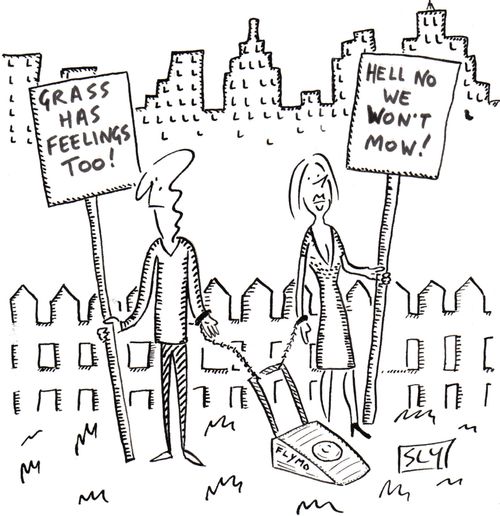 GRASS
HAS
FEELINGS
TOO!
HELL NO
WE
WON'T
MOW!
FLYMO
SLY